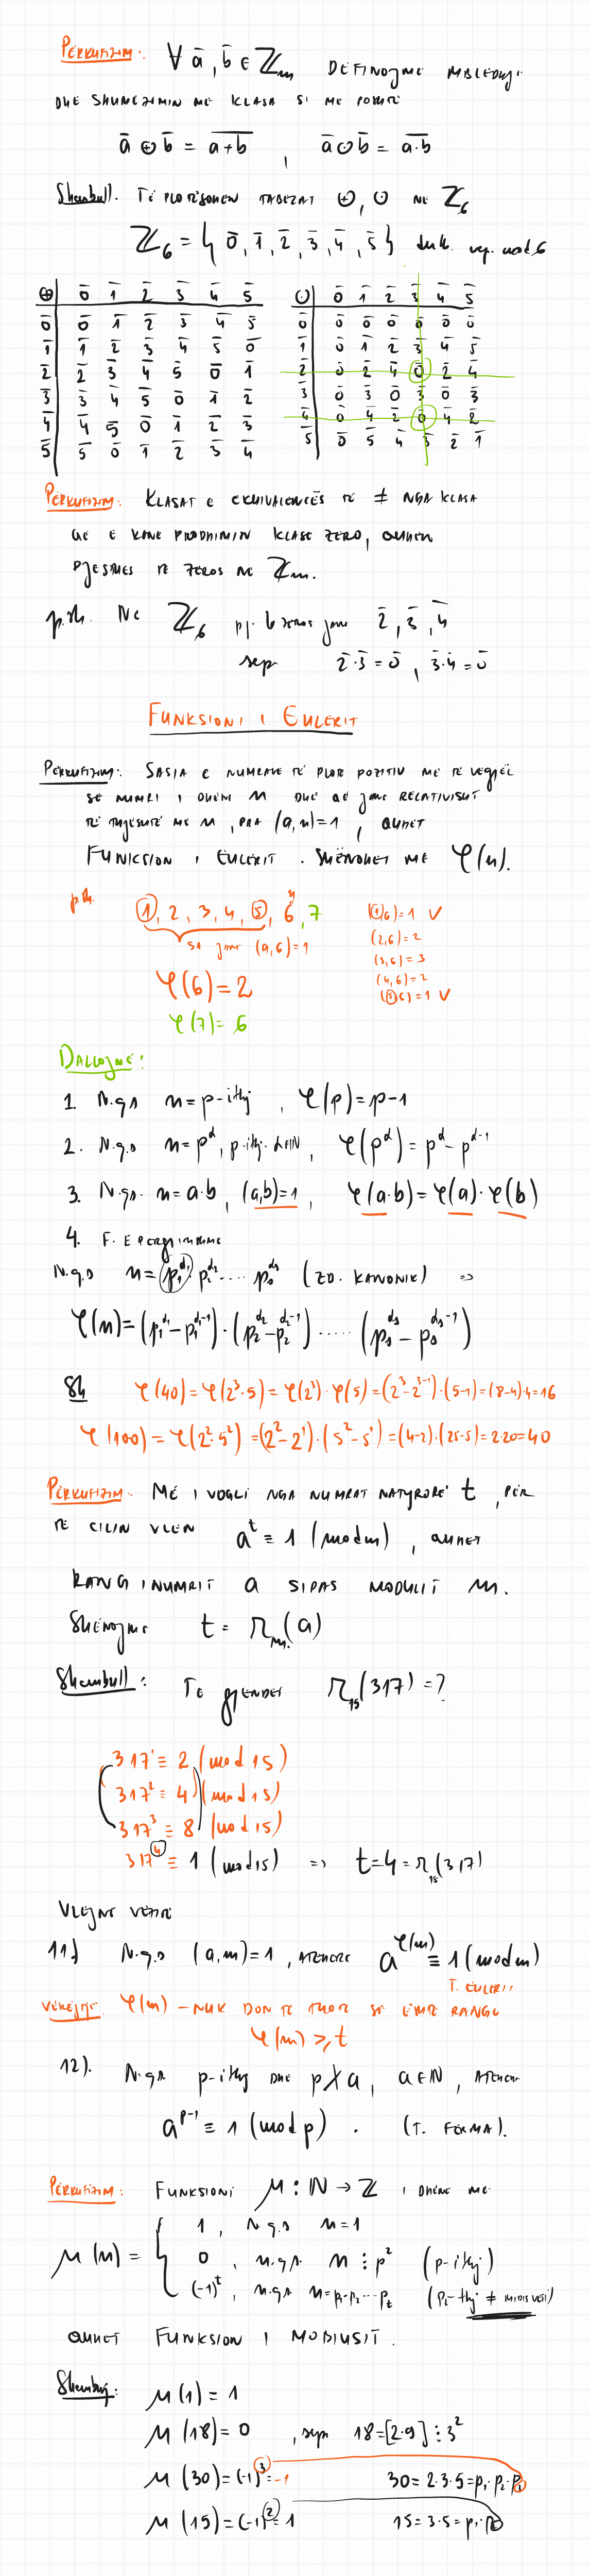 Përkufizim: ∀ ā, b̄ ∈ ℤm definojmë mbledhje
dhe shumëzimin me klasa si më poshtë
ā ⊕ b̄ = \overline{a+b} , ā ⊙ b̄ = \overline{a·b}
Shembull. Të plotësohen tabelat ⊕, ⊙ në ℤ6
ℤ6 = { 0̄, 1̄, 2̄, 3̄, 4̄, 5̄ } mod 6
⊕ 0̄ 1̄ 2̄ 3̄ 4̄ 5̄
0̄ 0̄ 1̄ 2̄ 3̄ 4̄ 5̄
1̄ 1̄ 2̄ 3̄ 4̄ 5̄ 0̄
2̄ 2̄ 3̄ 4̄ 5̄ 0̄ 1̄
3̄ 3̄ 4̄ 5̄ 0̄ 1̄ 2̄
4̄ 4̄ 5̄ 0̄ 1̄ 2̄ 3̄
5̄ 5̄ 0̄ 1̄ 2̄ 3̄ 4̄
⊙ 0̄ 1̄ 2̄ 3̄ 4̄ 5̄
0̄ 0̄ 0̄ 0̄ 0̄ 0̄ 0̄
1̄ 0̄ 1̄ 2̄ 3̄ 4̄ 5̄
2̄ 0̄ 2̄ 4̄ 0̄ 2̄ 4̄
3̄ 0̄ 3̄ 0̄ 3̄ 0̄ 3̄
4̄ 0̄ 4̄ 2̄ 0̄ 4̄ 2̄
5̄ 0̄ 5̄ 4̄ 3̄ 2̄ 1̄
Përkufizim: Klasat e ekuivalencës të ≠ nga klasa
që e kanë prodhimin klasë zero, quhen
pjestues të zeros në ℤm.
p.sh. Në ℤ6 pj. e zeros janë 2̄, 3̄, 4̄
sepse 2̄·3̄ = 0̄, 3̄·4̄ = 0̄
Funksioni i Eulerit
Përkufizim: Sasia e numrave të plotë pozitiv më të vegjël
se numri i dhënë n dhe që janë relativisht
të thjeshtë me n, pra (a,n)=1, quhet
Funksion i Eulerit. Shënohet me φ(n).
p.sh. 1, 2, 3, 4, 5, 6, 7
n
sa janë (a,6)=1
(1,6)=1 ✓
(2,6)=2
(3,6)=3
(4,6)=2
(5,6)=1 ✓
φ(6)=2
φ(7)=6
Dallojmë:
1. N.q.s n=p-i thj, φ(p)=p-1
2. N.q.s n=p^α, p-i thj. α∈ℕ, φ(p^α)=p^α-p^{α-1}
3. N.q.s. n=a·b, (a,b)=1, φ(a·b)=φ(a)·φ(b)
4. F. e përgjithshme
N.q.s n=p1^{α1}·p2^{α2}.....ps^{αs} (zb. kanonik) ⇒
φ(n)=(p1^{α1}-p1^{α1-1})·(p2^{α2}-p2^{α2-1})·....·(ps^{αs}-ps^{αs-1})
Sh φ(40)=φ(2³·5)=φ(2³)·φ(5)=(2³-2^{3-1})·(5-1)=(8-4)·4=16
φ(100)=φ(2²·5²)=(2²-2¹)·(5²-5¹)=(4-2)·(25-5)=2·20=40
Përkufizim: Më i vogli nga numrat natyrorë t, për
të cilin vlen a^t ≡ 1 (mod m), quhet
rang i numrit a sipas modulit m.
Shënojmë t = r_m(a)
Shembull: Të gjendet r15(317)=?
317¹ ≡ 2 (mod 15)
317² ≡ 4 (mod 15)
317³ ≡ 8 (mod 15)
317⁴ ≡ 1 (mod 15) ⇒ t=4=r15(317)
Vlejnë vetitë
11) N.q.s (a,m)=1, atëherë a^{φ(m)} ≡ 1 (mod m)
T. Eulerit
Vërejtje. φ(m) - nuk don të thotë se është rangu
φ(m) ≥ t
12). N.q.s. p-i thj dhe p∤a, a∈ℕ, atëherë
a^{p-1} ≡ 1 (mod p). (T. Ferma).
Përkufizim: Funksioni μ: ℕ → ℤ i dhënë me
μ(n) = { 1, N.q.s n=1
0, n.q.s. n ⋮ p² (p-i thj)
(-1)^t, n.q.s. n=p1·p2···pt (pi-thj ≠ midis veti)
quhet Funksion i Mobiusit.
Shembuj: μ(1)=1
μ(18)=0, sepse 18=[2·9] ⋮ 3²
μ(30)=(-1)³=-1 30=2·3·5=p1·p2·p3
μ(15)=(-1)²=1 15=3·5=p1·p2